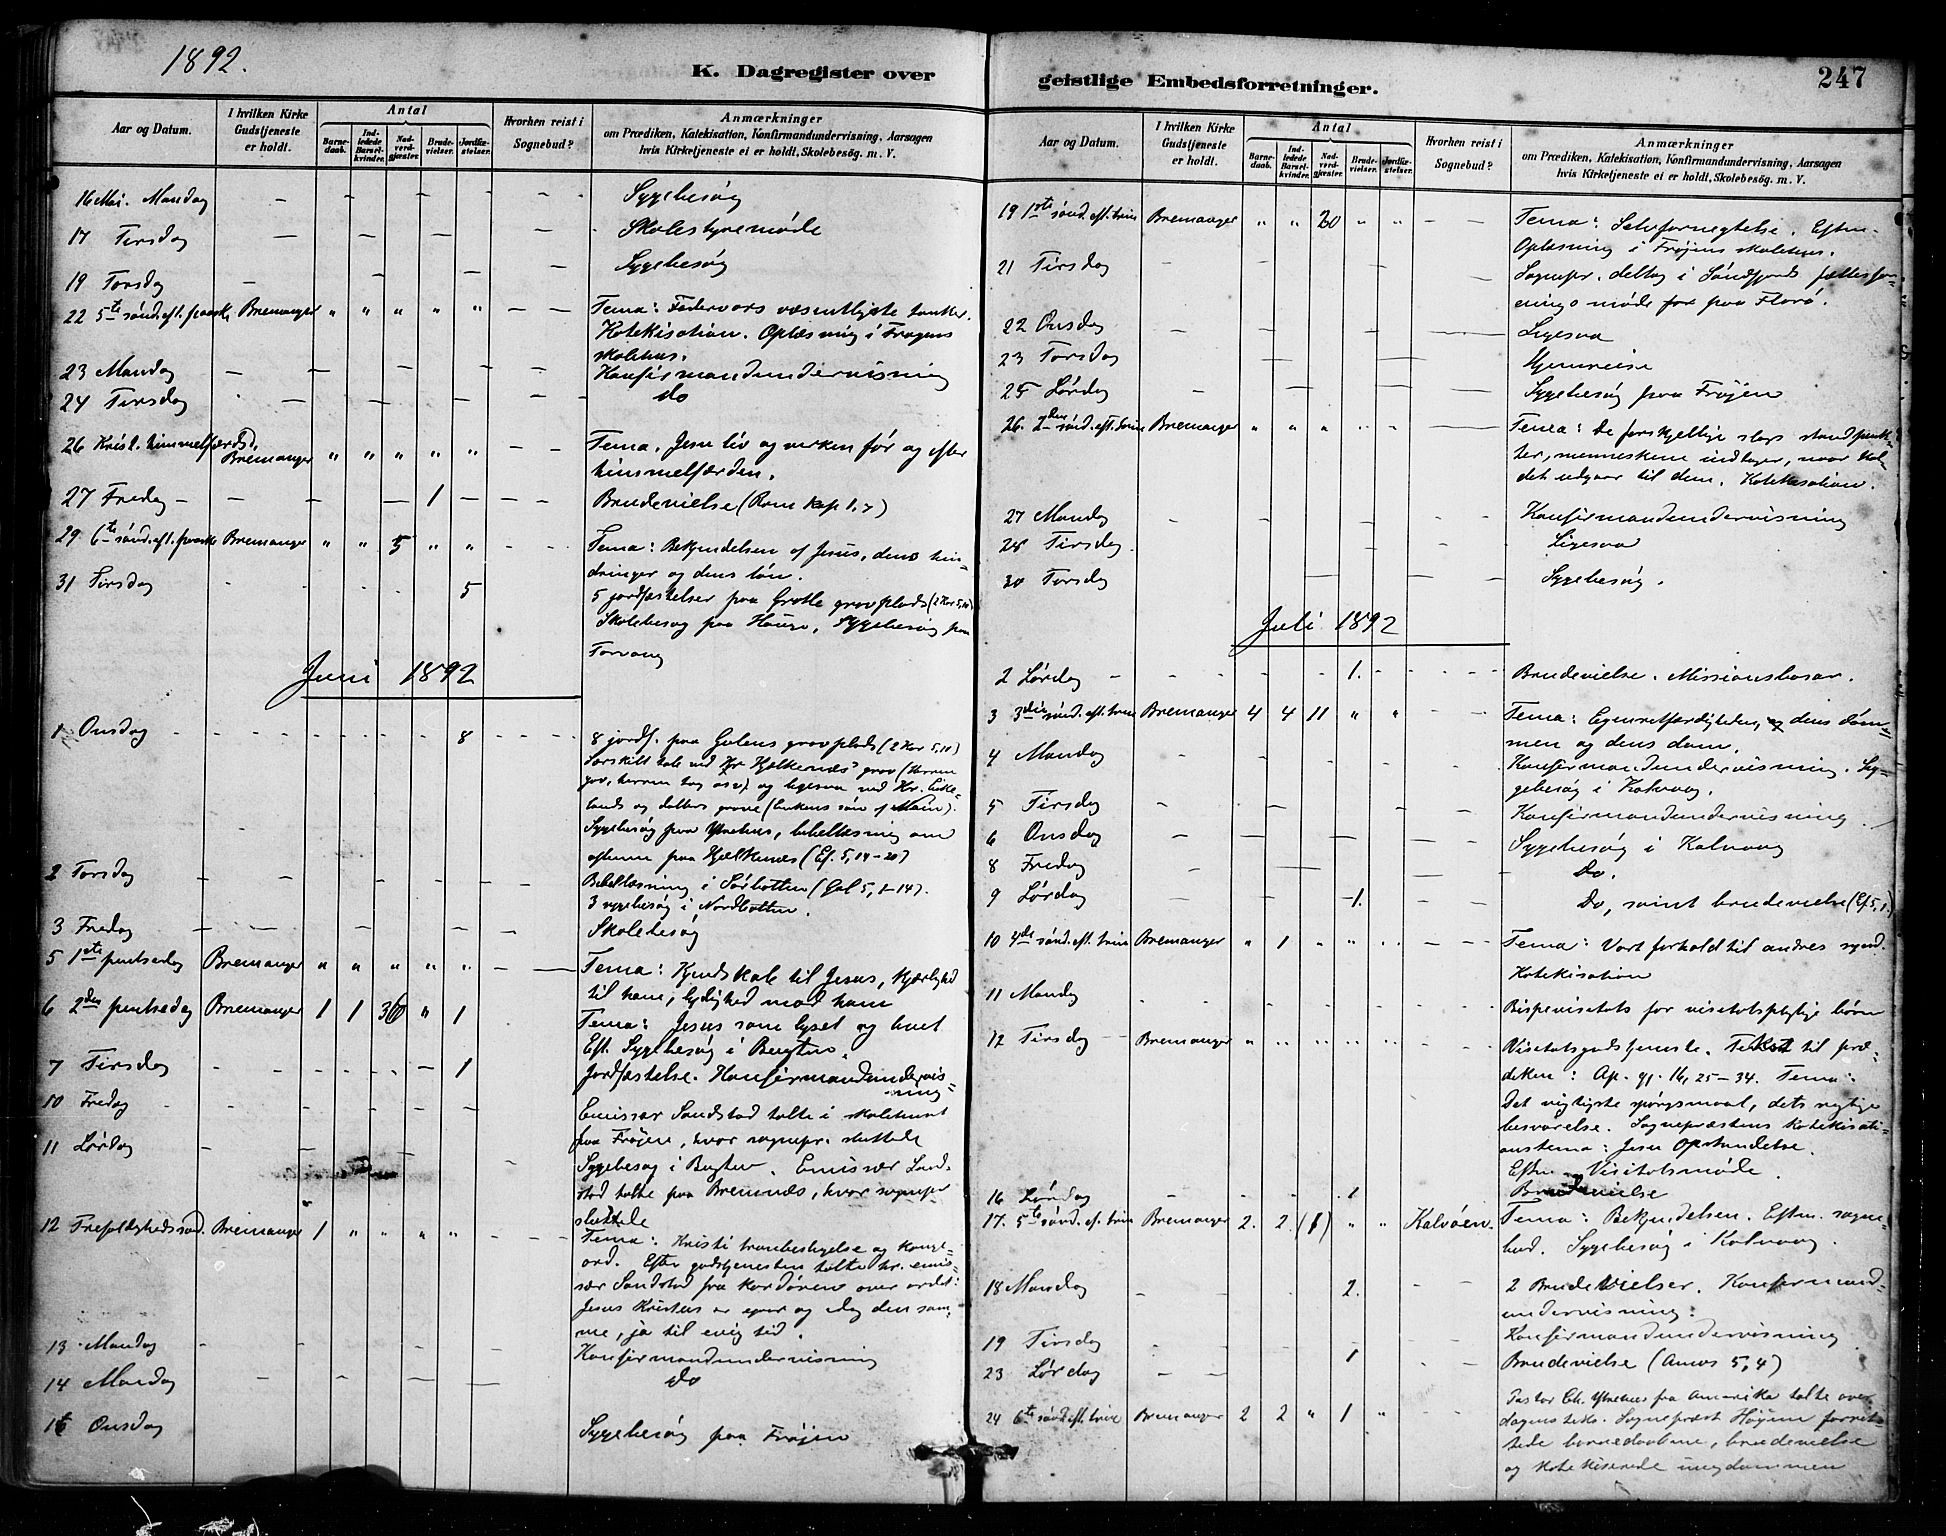 1892.
K. Dagregister over
Aar og Datum.
I hvilken Kirke Gudstjeneste er holdt.
Antal
Barnedaab.
Indledede Barselkvinder.
Nadverdgjæster.
Brudevielser.
Jordfæstelser.
Hvorhen reist i Sognebud?
Anmærkninger
om Prædiken, Katekisation, Konfirmandundervisning, Aarsagen
hvis Kirketjeneste ei er holdt, Skolebesøg. m. V.
16 Mai. Mandag - - - - - - - Sygebesøg
17 Tirsdag - - - - Skolestyremøde
19 Torsdag - - - - Sygebesøg
22 5te sønd. eft. paaske Bremanger " " " " " - - Tema: Fadervors væsentligste tanker.
Katekisation. Oplæsning i Frøyens
skolehus.
23 Mandag - - - - - - Konfirmandundervisning
24 Tirsdag - - - - - do
26 Krist. himmelfærdsd. Bremanger " " " " " - - Tema. Jesu liv og virken før og efter
himmelfærden.
27 Fredag - - - - 1 - - - Brudevielse (Rom kap 1, 7)
29 6te sønd. eft. paaske Bremanger " " 5 " " - - Tema: Bekjendelsen af Jesus, dens hin-
dringer og dens løn.
31 Tirsdag 5 5 jordfæstelser paa Grotle gravplads (2 Kor 5,10)
Skolebesøg paa Hauge, Sygebesøg paa
Torvang
Juni 1892
1 Onsdag - - - - - - 8 - - - 8 jordf. paa Gulens gravplads (2 Kor 5,10)
Særskilt tale ved Hr Hjelkenæs' grav (Herren
gav, herren tog osv) og ligesaa ved Hr.
og datters grave (Enkens søn af Nain).
Sygebesøg paa Ytrehus, bibellæsning om
aftenen paa Hjelkenæs (Ef. 5, 14-20)
2 Torsdag - - - - - - Bibellæsning i Sørbotten (Gal 5, 1-14).
3 sygebesøg i Nordbotten.
3 Fredag - - - - - Skolebesøg
5 1ste pintsedag Bremanger " " " " " - - Tema: Kjendskab til Jesus, kjærlighed
til ham, lydighed mod ham
6 2den pintsedag Bremanger 1 1 36 " 1 Tema: Jesus som lyset og livet
Eft. Sygebesøg i Bugten.
7 Tirsdag - - - - - 1 Jordfæstelse. Konfirmandundervis-
ning
10 Fredag - - - - - Emissær Sandstad talte i skolehuset
paa Frøien, hvor sognepr. sluttede
11 Lørdag - - - - - Sygebesøg i Bugten. Emissær Sand-
stad talte paa Bremnæs, hvor sognepr
sluttede
12 Trefoldighedssønd. Bremanger 1 " " " " Tema: Kristi tronbestigelse og konge-
ord. Efter gudstjenesten talte hr. emis-
sær Sandstad fra kordøren over ordet:
Jesus Kristus er igaar og idag den sam-
me, ja til evig tid.
13 Mandag - - - - - Konfirmandundervisning
14 Mandag - - - - do
15 Onsdag - - - - Sygebesøg paa Frøjen
geistlige Embedsforretninger.
247
Aar og Datum.
I hvilken Kirke Gudstjeneste er holdt.
Antal
Barnedaab.
Indledede Barselkvinder.
Nadverdgjæster.
Brudevielser.
Jordfæstelser.
Hvorhen reist i Sognebud?
Anmærkninger
om Prædiken, Katekisation, Konfirmandundervisning, Aarsagen
hvis Kirketjeneste ei er holdt, Skolebesøg. m. V.
19 1ste sønd. eft. trin Bremanger " " 20 " " - - Tema: Selvfornegtelse. Eftm.
Oplæsning i Frøjens skolehus.
21 Tirsdag - - - - - Sognepr. deltog i Søndfjords fællesfor-
enings møde paa Florø.
22 Onsdag - - - - Ligesaa
23 Torsdag - - - - Hjemreise
25 Lørdag - - - - Sygebesøg paa Frøjen
26. 2den sønd. eft. trin Bremanger " " " " " - Tema: De forskjellige slags standpunk-
ter, menneskene indtager, naar kal-
det udgaar til dem. Katekisation.
27 Mandag - - - - - Konfirmandundervisning
28 Tirsdag - - - - Ligesaa
30 Torsdag - - - Sygebesøg.
Juli 1892
2 Lørdag - - - - 1. - - - Brudevielse. Missionsbasar.
3 3die sønd. eft. trin Bremanger 4 4 11 " " - - Tema: Egenretfærdigheden, dens døm-
men og dens dom.
4 Mandag - - - - - Konfirmandundervisning. Sy-
gebesøg i Kalvaag.
5 Tirsdag - - - - Konfirmandundervisning
6 Onsdag - - - - Sygebesøg i Kalvaag
8 Fredag - - - - Do.
9 Lørdag - - - 1. - - Do, samt brudevielse (Ef 5, 1.)
10 4de sønd. eft. trin Bremanger " 1 " " " - - Tema: Vort forhold til andres synd.
Katekisation
11 Mandag - - - - - Bispevisitats for visitatspligtige børn
12 Tirsdag - - Bremanger " " " " " - - Visitatsgudstjeneste. Tekst til præ-
diken: Ap. gj. 16, 25-34. Tema:
Det vigtigste spørgsmaal, dets rigtige
besvarelse. Sognepræstens katekisati-
onstema: Jesu Opstandelse.
Eftm. Visitatsmøde.
16 Lørdag - - - 1 - - Brudevielse
17. 5te sønd. ef. trin Bremanger 2. 2. (1) " " Kalvøen. Tema: Bekjendelsen. Eftm. sogne-
bud. Sygebesøg i Kalvaag.
18 Mandag - - - 2. - - 2 Brudevielser. Konfirmand-
undervisning.
19 Tirsdag - - - - - Konfirmandundervisning
23 Lørdag 1 - - Brudevielse (Amos 5, 4)
24 6te sønd. eft. trin Bremanger 2 2 " 1 " Pastor Ch. Ytrehus fra Amerika talte over
dagens tekst. Sognepræst Høyem forret-
tede barnedaabene, brudevielse
og katekiserede ungdommen